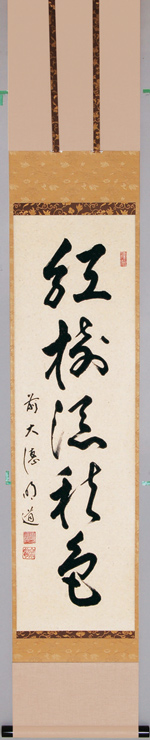 紅樹深秋色
前大徳明道